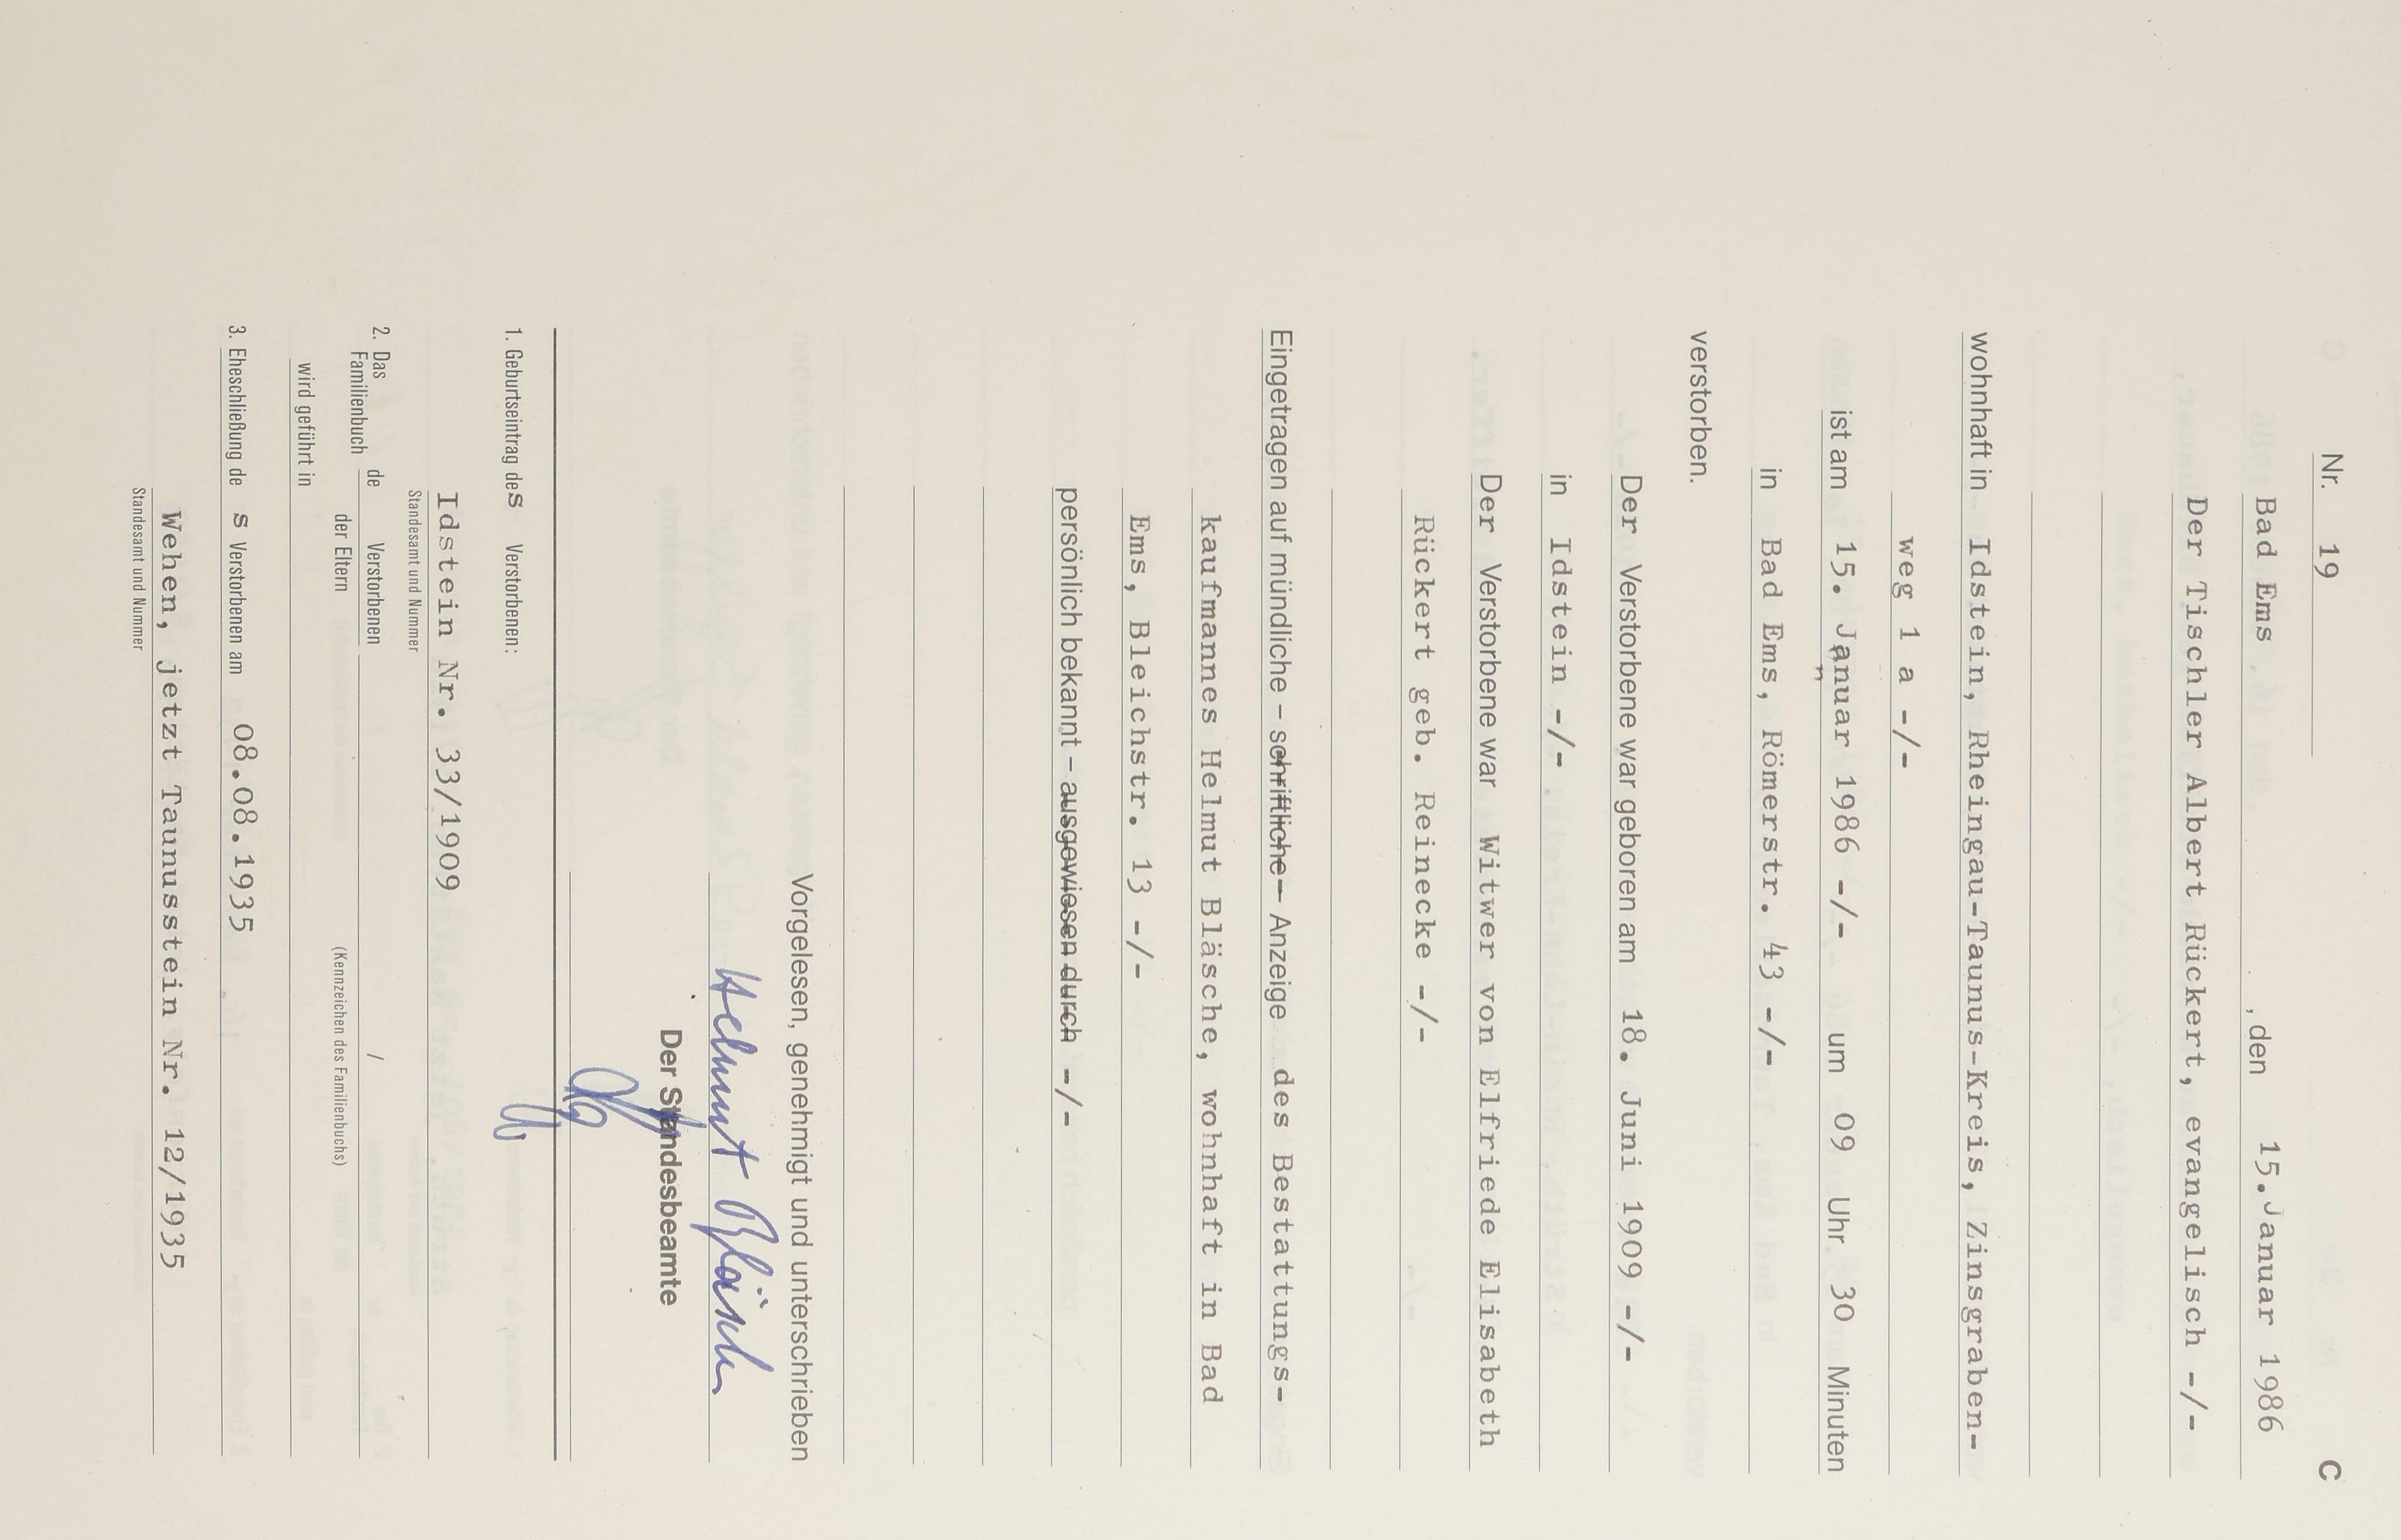 C
Nr. 19
Bad Ems, den 15. Januar 1986
Der Tischler Albert Rückert, evangelisch -/-
wohnhaft in Idstein, Rheingau-Taunus-Kreis, Zinsgraben-
weg 1 a -/-
ist am 15. Januar 1986 -/- um 09 Uhr 30 Minuten
in Bad Ems, Römerstr. 43 -/-
verstorben.
Der Verstorbene war geboren am 18. Juni 1909 -/-
in Idstein -/-
Der Verstorbene war Witwer von Elfriede Elisabeth
Rückert geb. Reinecke -/-
Eingetragen auf mündliche – schriftliche – Anzeige des Bestattungs-
kaufmannes Helmut Bläsche, wohnhaft in Bad
Ems, Bleichstr. 13 -/-
persönlich bekannt – ausgewiesen durch -/-
Vorgelesen, genehmigt und unterschrieben
Helmut Bläsche
Der Standesbeamte
1. Geburtseintrag des Verstorbenen:
Idstein Nr. 33/1909
Standesamt und Nummer
2. Das Familienbuch de Verstorbenen /
der Eltern (Kennzeichen des Familienbuchs)
wird geführt in
3. Eheschließung de s Verstorbenen am 08.08.1935
Wehen, jetzt Taunusstein Nr. 12/1935
Standesamt und Nummer